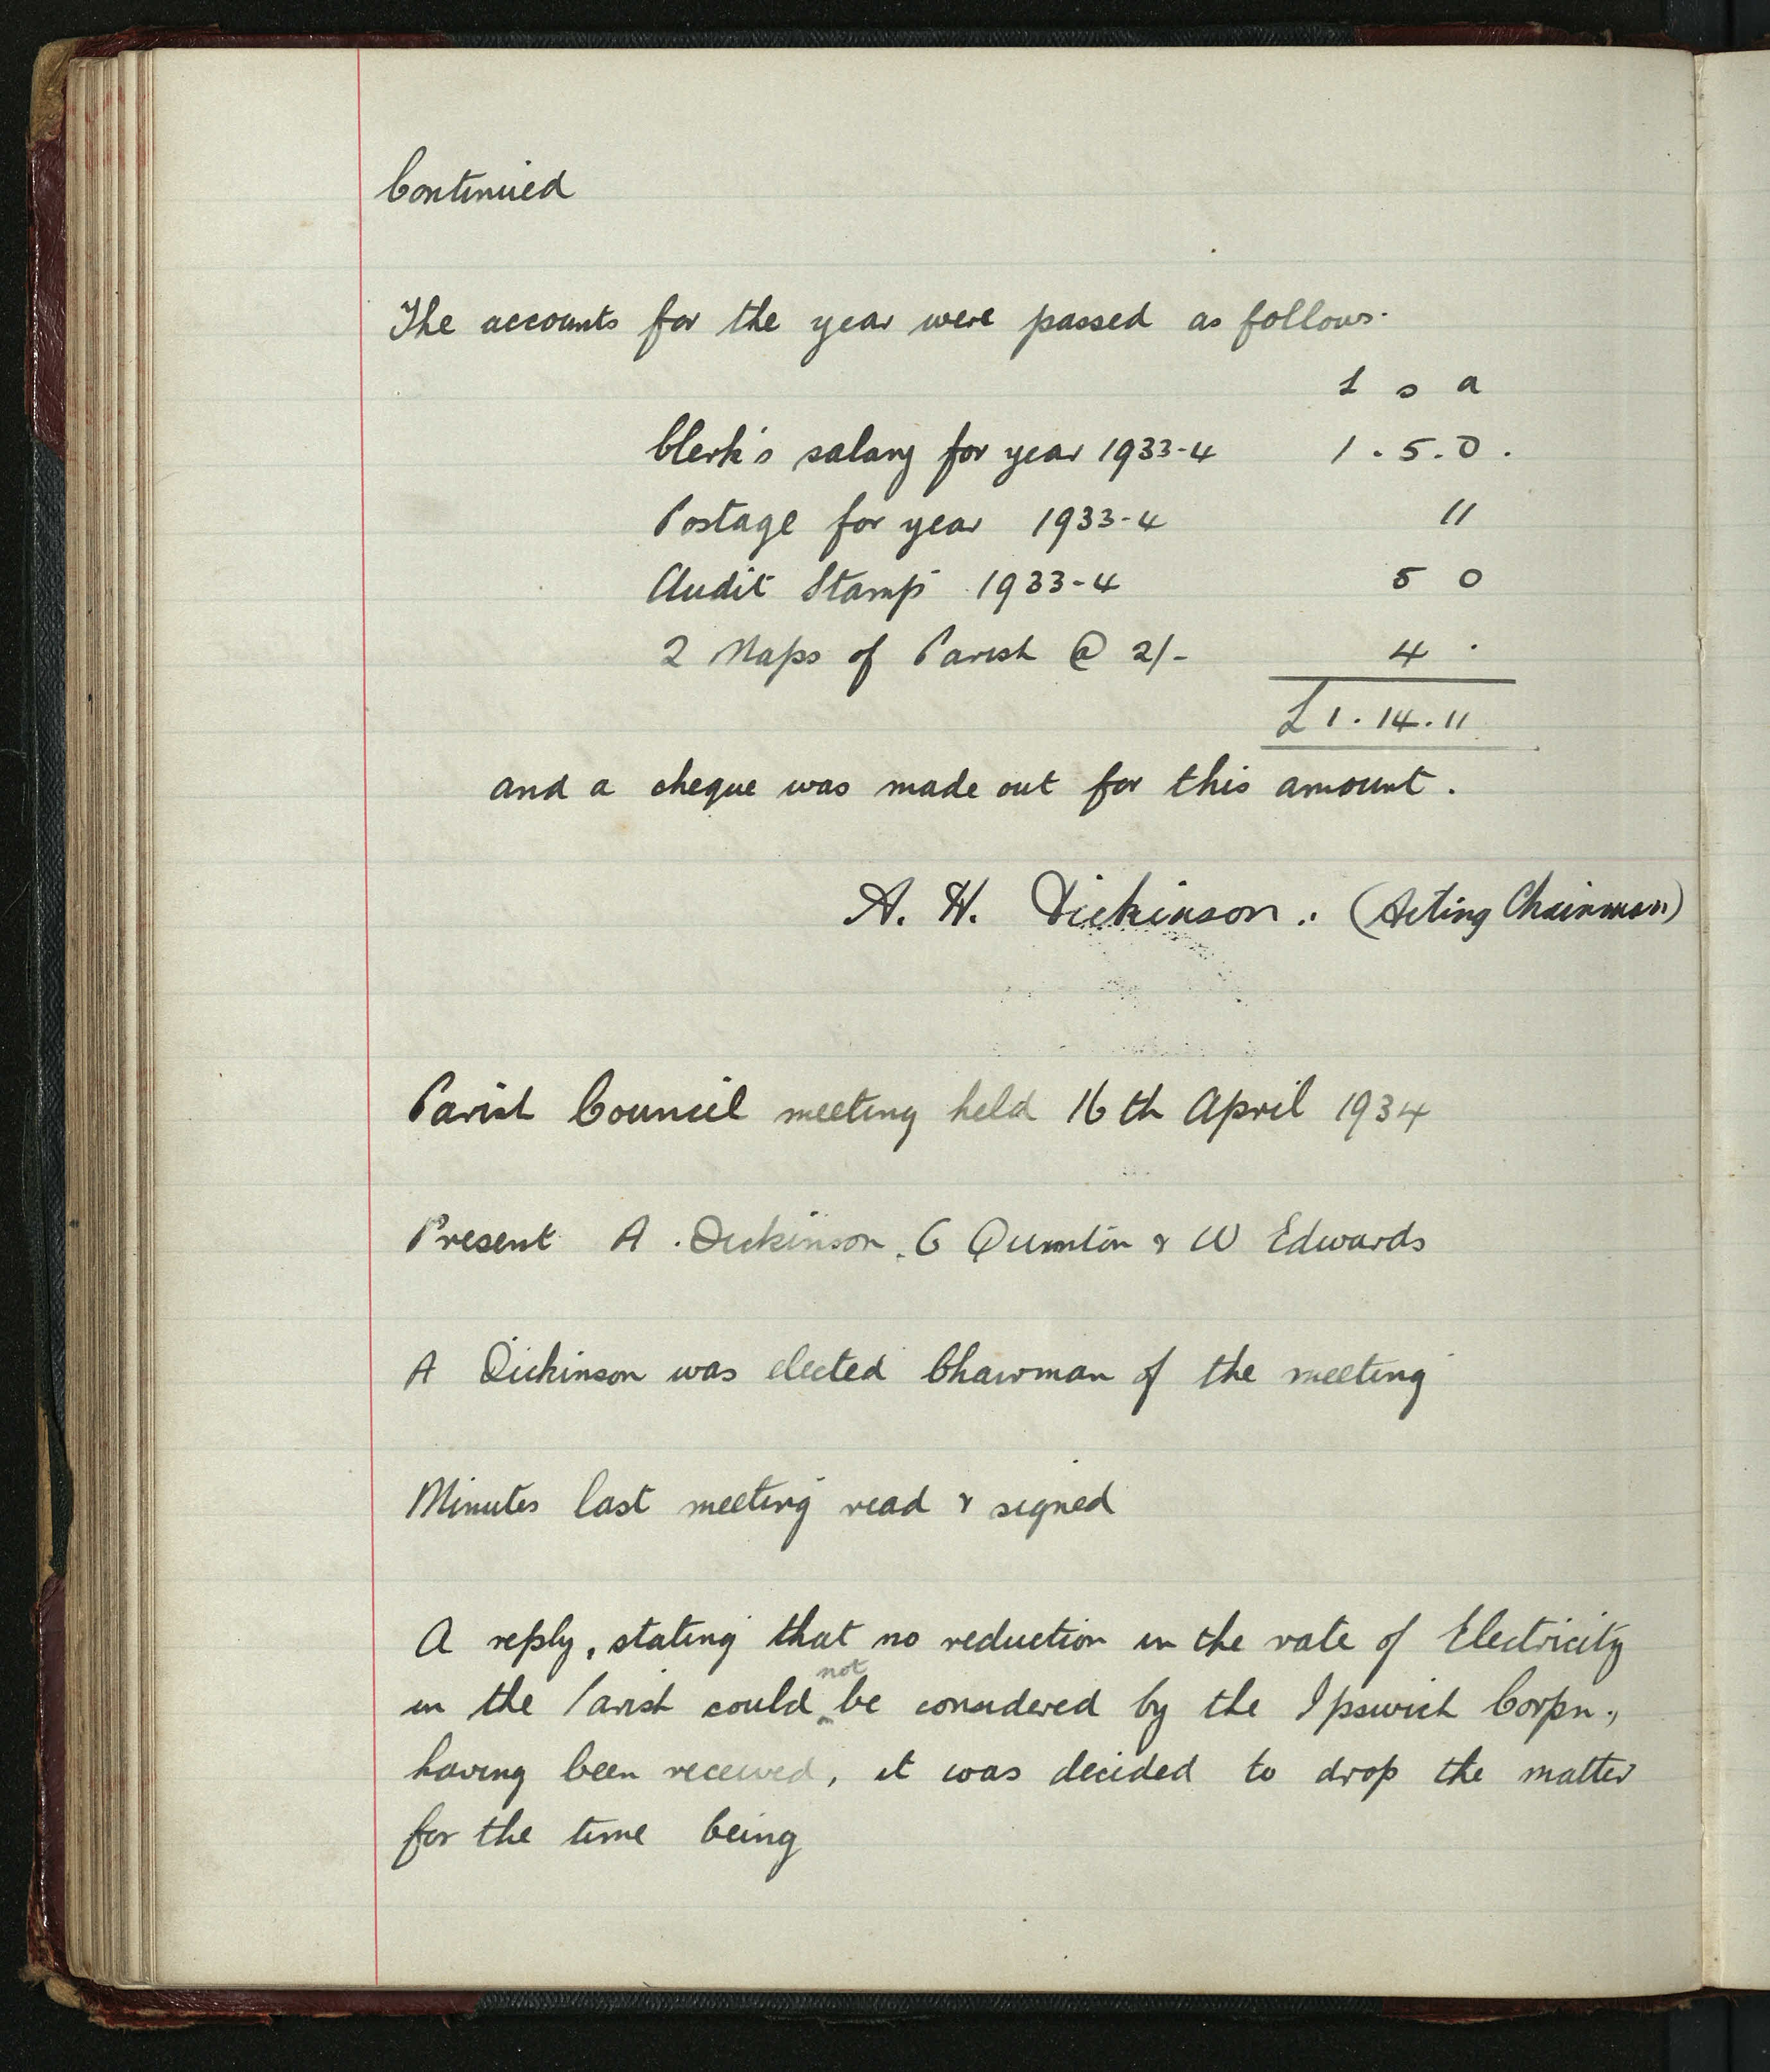 Continued
The accounts for the year were passed as follows.
£ s d
Clerk's salary for year 1933-4 1.5.0.
Postage for year 1933-4 11
Audit Stamp 1933-4 5 0
2 Maps of Parish @ 2/- 4 .
£1.14.11
and a cheque was made out for this amount.
A. H. Dickinson. (Acting Chairman)
Parish Council meeting held 16th April 1934
Present A. Dickinson. C Quinton & W Edwards
A Dickinson was elected Chairman of the meeting
Minutes last meeting read & signed
A reply, stating that no reduction in the rate of Electricity
in the Parish could not be considered by the Ipswich Corpn.,
having been received, it was decided to drop the matter
for the time being